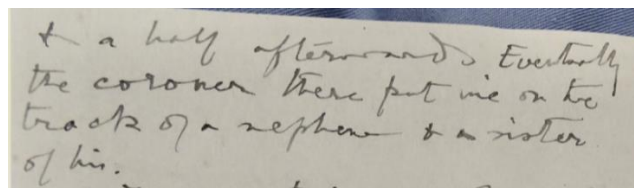 & a half afterwards Eventually
the coroner there put me on the
track of a nephew & a sister
of his.